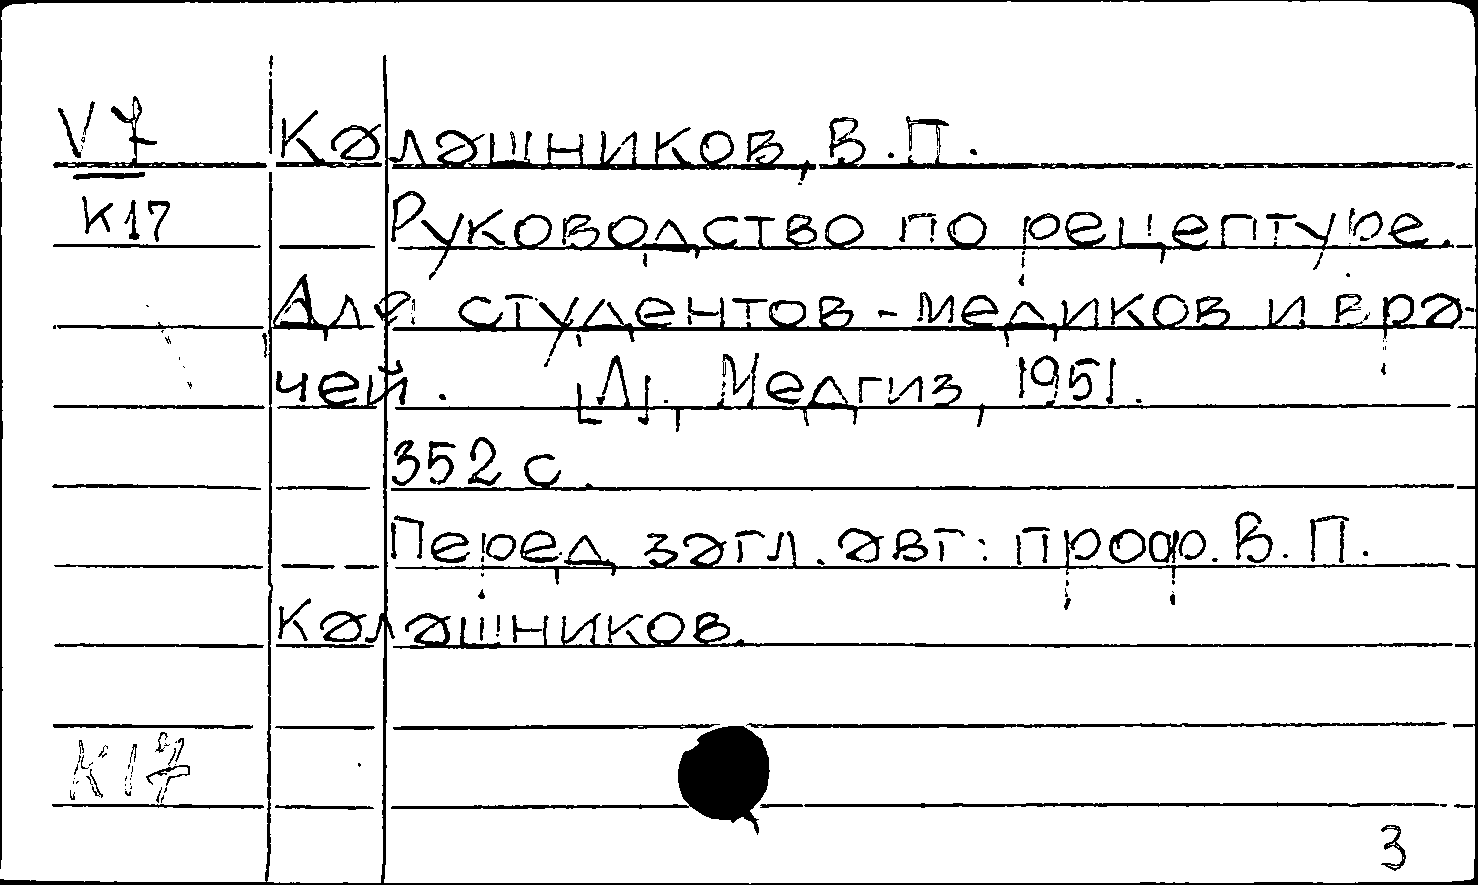 V7 Калашников, В.П.
К17 Руководство по рецептуре.
Для студентов-медиков и вра-
чей. [Л]., Медгиз, 1951.
352 с.
Перед загл. авт: проф. В. П.
Калашников.
К17
3